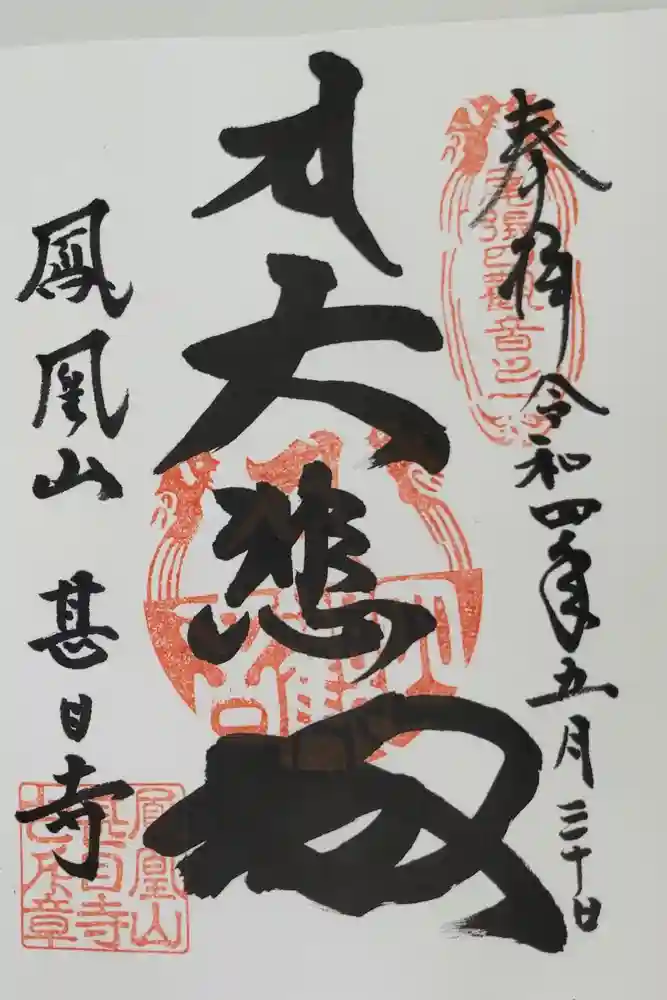 奉拝
令和四年五月三十日
大悲殿
鳳凰山
甚目寺
鳳凰山
甚目寺